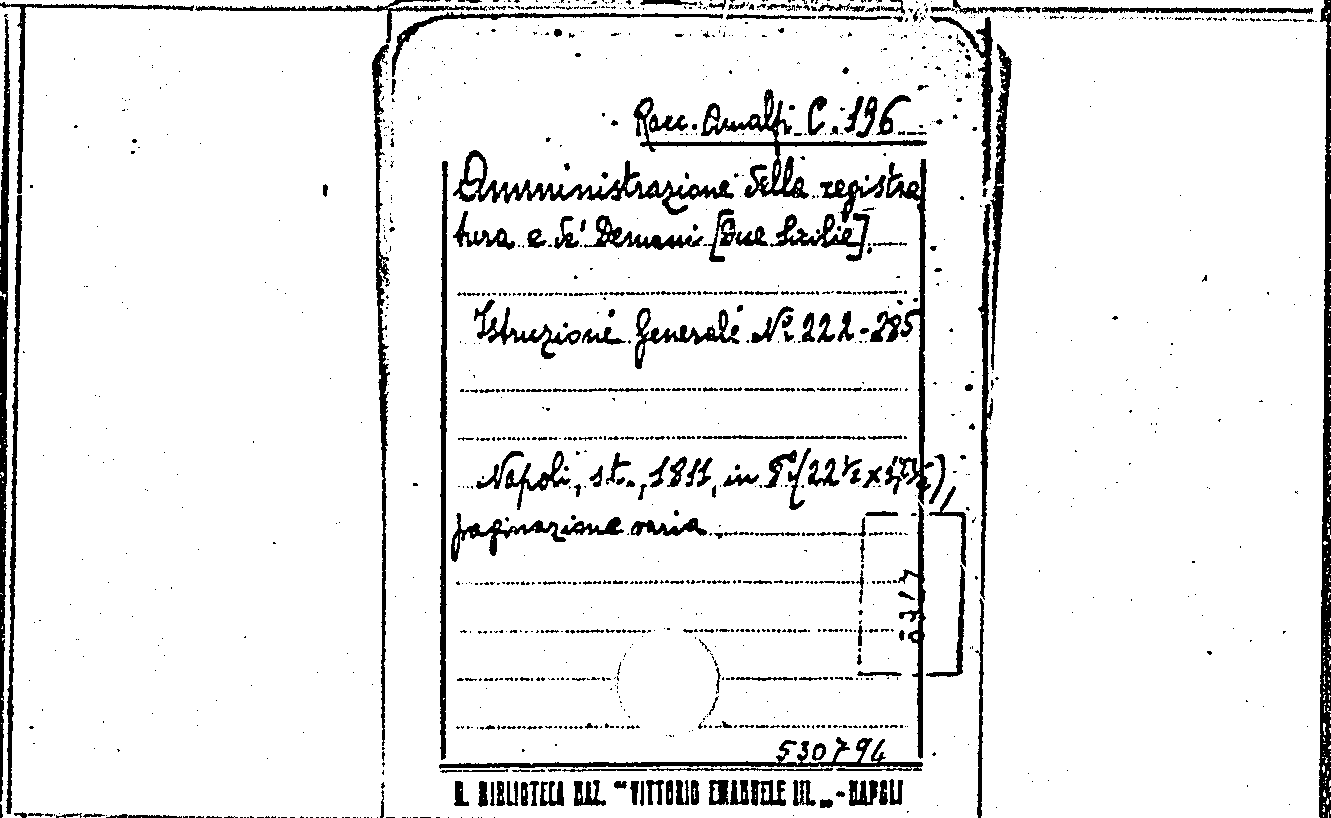 Racc. Amalfi C. 196
Amministrazione della registra
tura e de' Demani [Due Sicilie].
Istruzione Generale Nº 222-285
Napoli, st., 1811, in 8º (22 ½ x
paginazione varia.
530794
R. BIBLIOTECA NAZ. "VITTORIO EMANUELE III" - NAPOLI